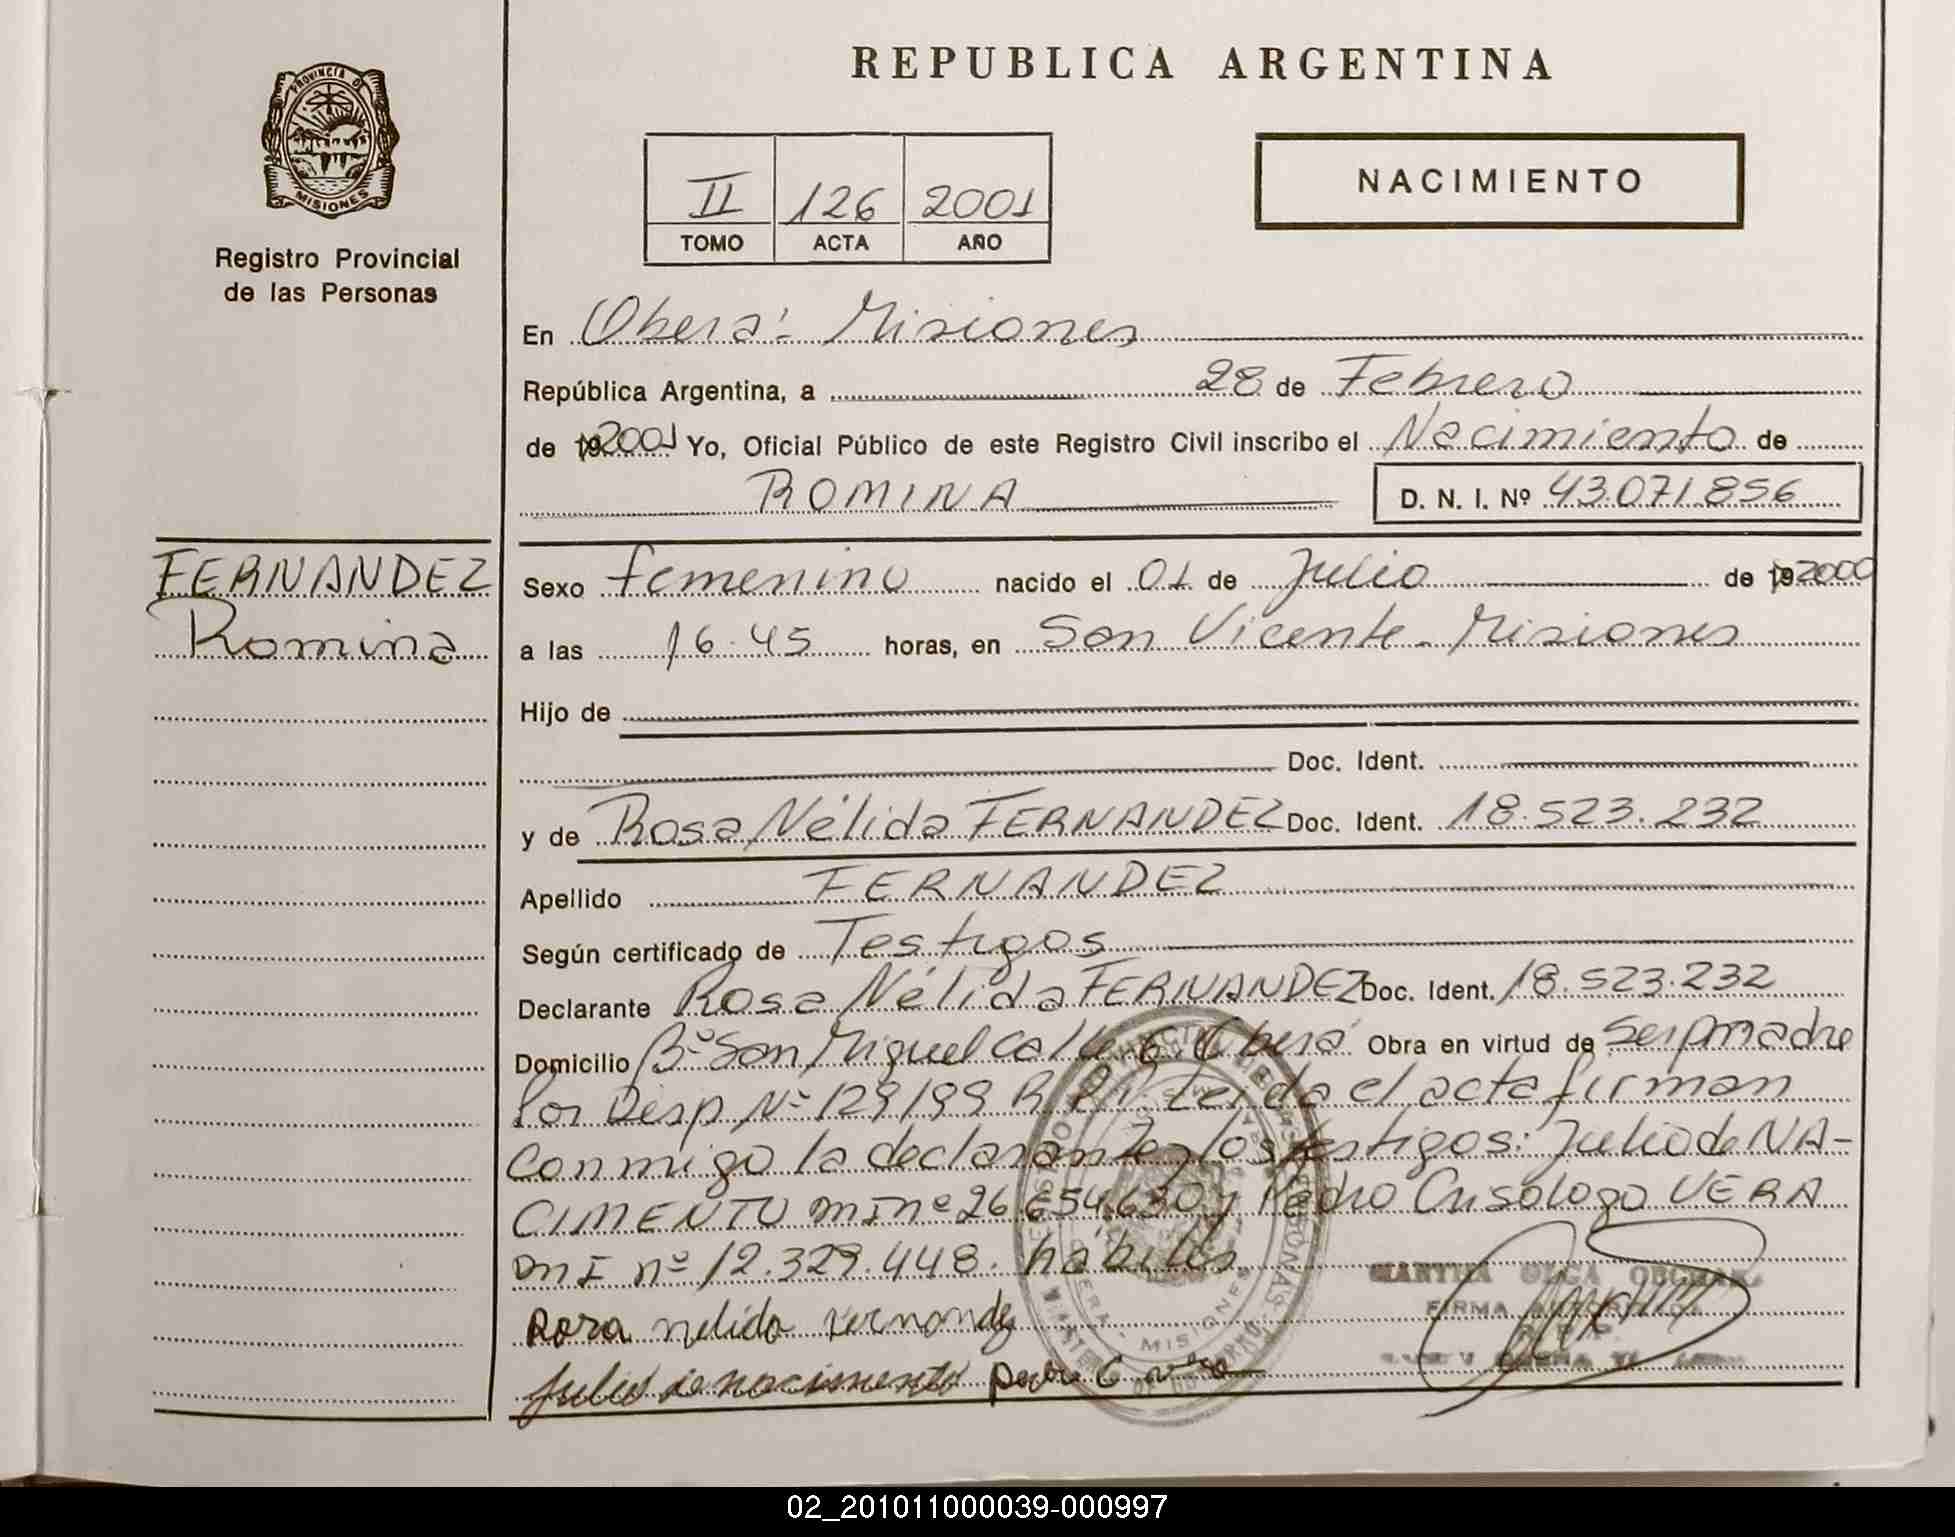 PROVINCIA DE
MISIONES
Registro Provincial
de las Personas
REPUBLICA ARGENTINA
II 126 2001
TOMO ACTA AÑO
NACIMIENTO
En Oberá - Misiones
República Argentina, a 28 de Febrero
de 19 2001 Yo, Oficial Público de este Registro Civil inscribo el Nacimiento de
ROMINA D. N. I. Nº 43.071.856
FERNANDEZ
Romina
Sexo femenino nacido el 01 de Julio de 19 2000
a las 16.45 horas, en San Vicente - Misiones
Hijo de
Doc. Ident.
y de Rosa Nélida FERNANDEZ Doc. Ident. 18.523.232
Apellido FERNANDEZ
Según certificado de Testigos
Declarante Rosa Nélida FERNANDEZ Doc. Ident. 18.523.232
Domicilio Bº San Miguel calle 6. Oberá Obra en virtud de Ser madre
Por Disp Nº 129/99 R.P.P. Leida el acta firman
conmigo la declarante y los testigos: Julio de NA-
CIMENTO MI nº 26.654.630 y Pedro Crisologo VERA
MI nº 12.329.448. hábiles
Rosa nelida Fernandez
Julio de nacimento pedro C vera
MARTHA OLGA
FIRMA AUTORIZADA
MISIONES
02_201011000039-000997